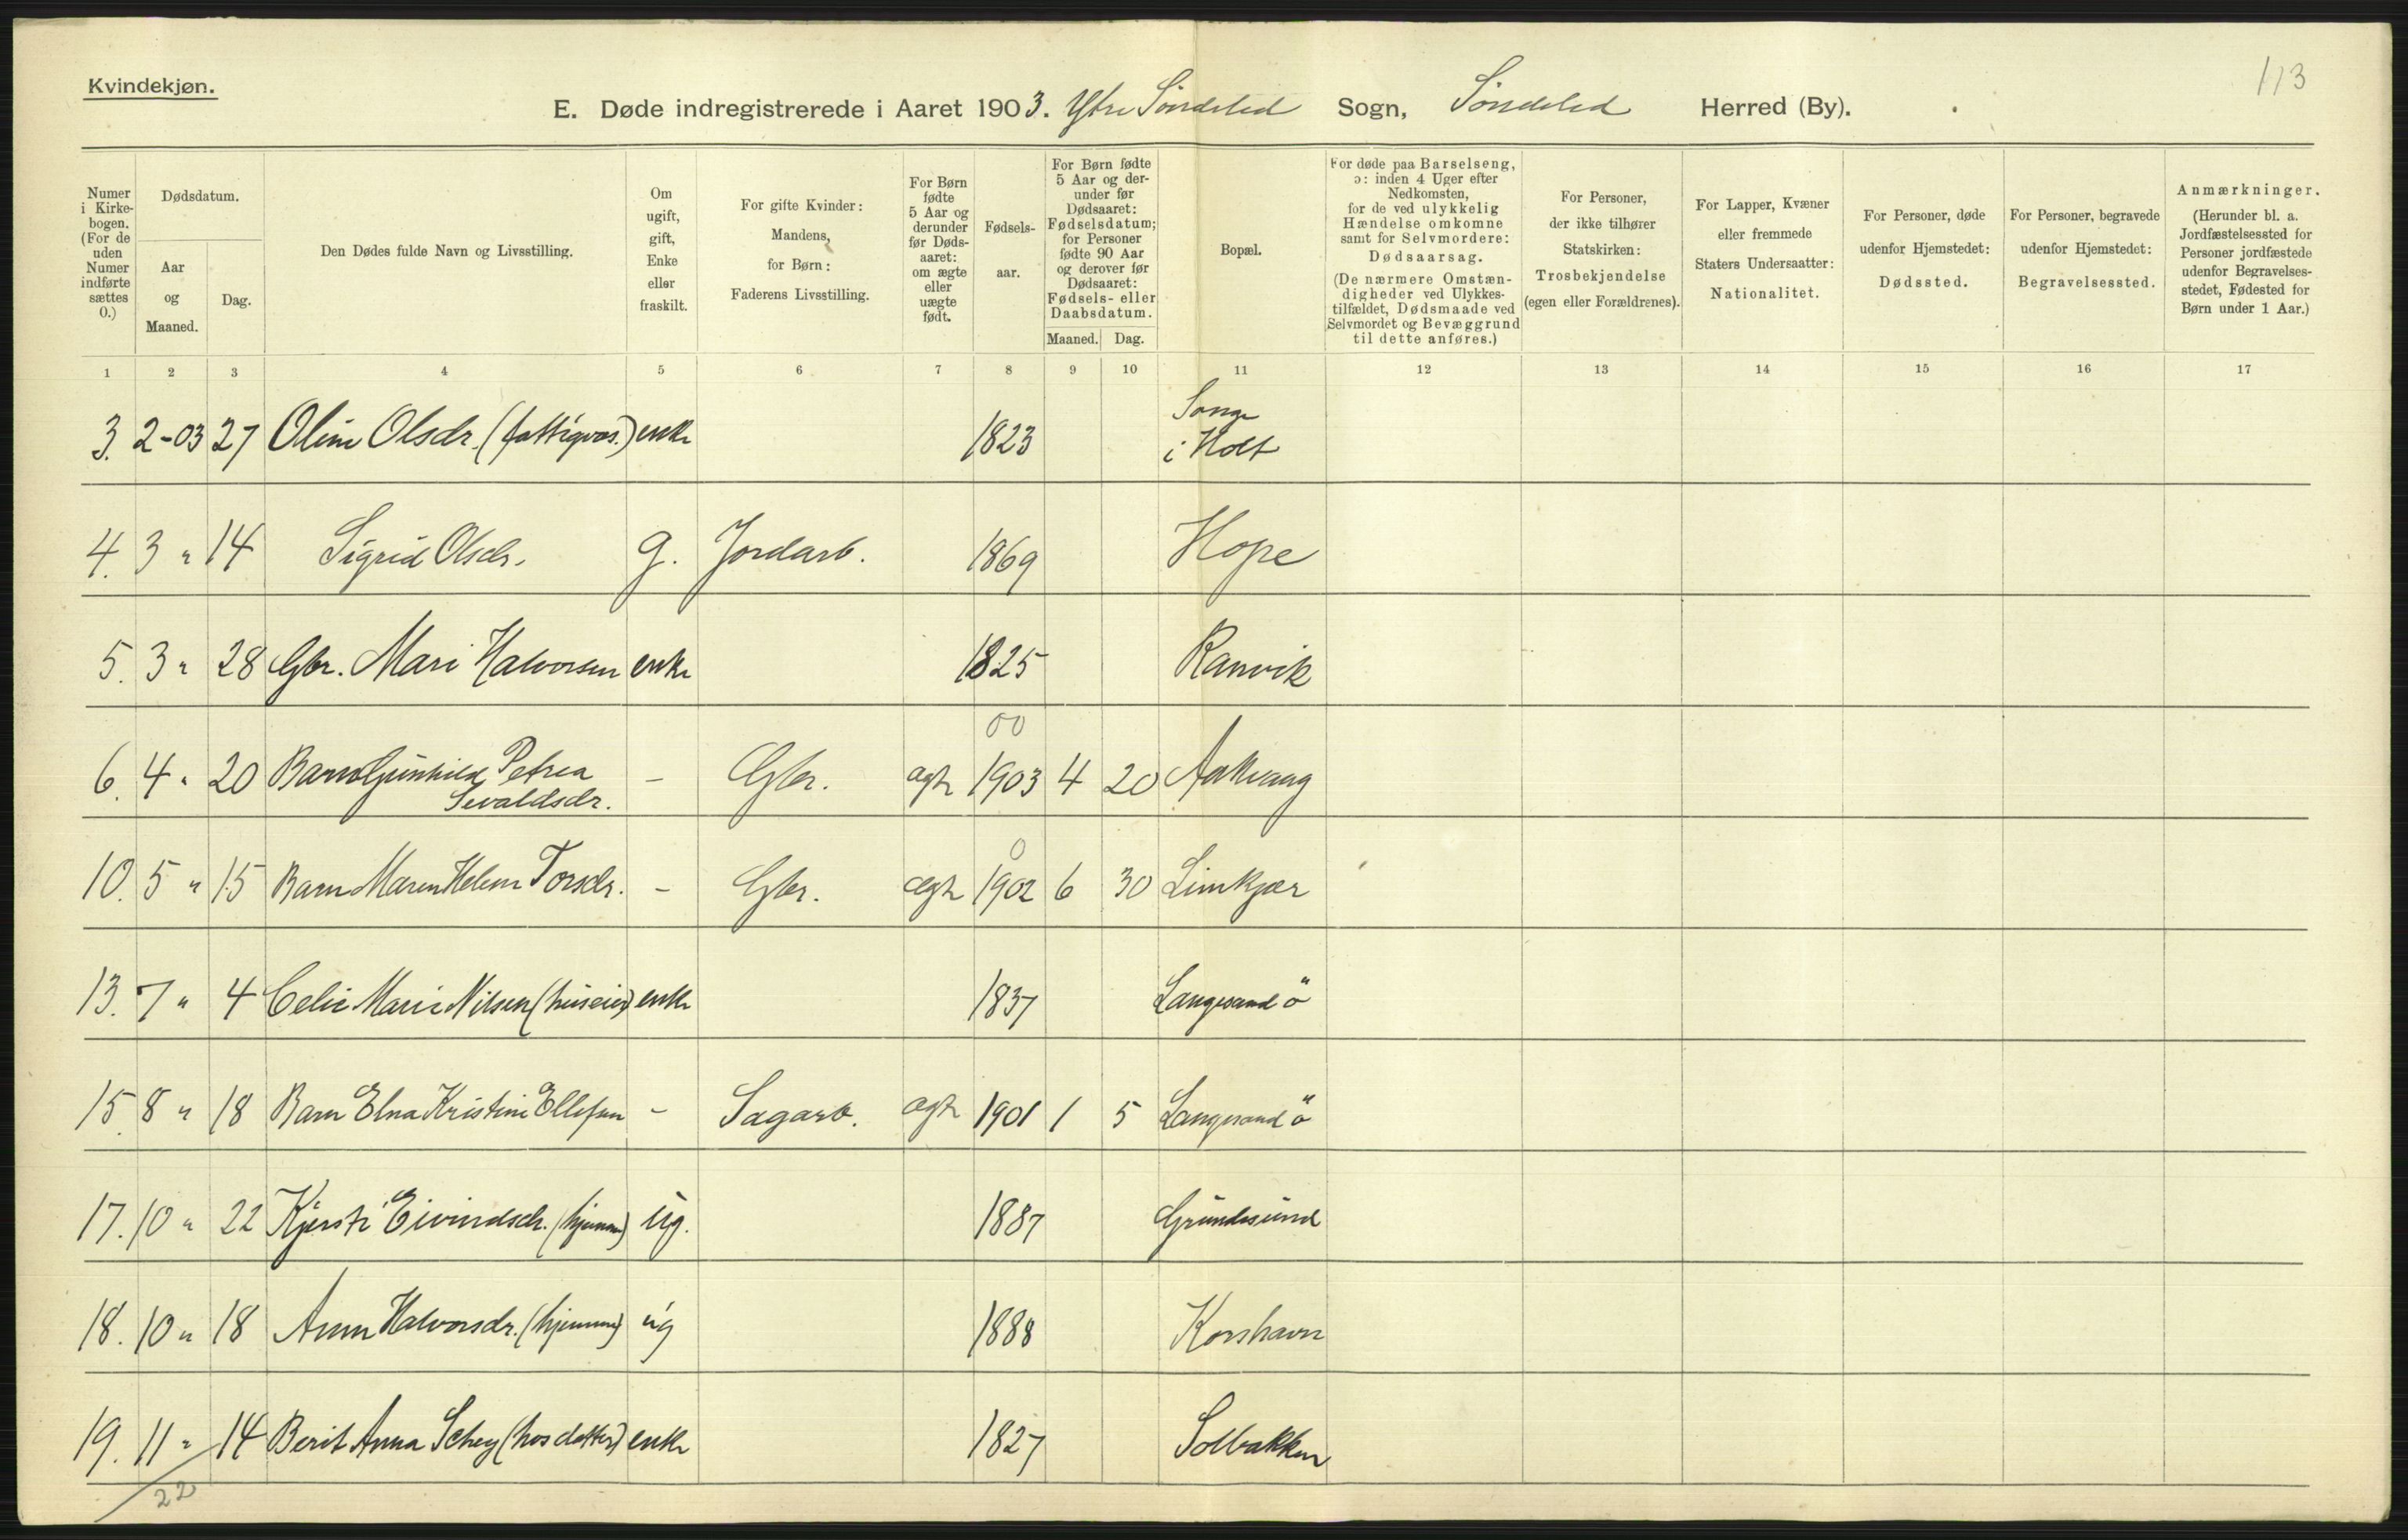 113
Kvindekjøn.
E. Døde indregistrerede i Aaret 1903. Ytre Söndeled Sogn, Söndeled Herred (By).
Numer i Kirke-bogen. (For de uden Numer indførte sættes 0.)
Dødsdatum.
Aar og Maaned.
Dag.
Den Dødes fulde Navn og Livsstilling.
Om ugift, gift, Enke eller fraskilt.
For gifte Kvinder: Mandens, for Børn: Faderens Livsstilling.
For Børn fødte 5 Aar og derunder før Døds-aaret: om ægte eller uægte født.
Fødsels-aar.
For Børn fødte 5 Aar og der-under før Dødsaaret: Fødselsdatum; for Personer fødte 90 Aar og derover før Dødsaaret: Fødsels- eller Daabsdatum.
Maaned. Dag.
Bopæl.
For døde paa Barselseng, ɔ: inden 4 Uger efter Nedkomsten, for de ved ulykkelig Hændelse omkomne samt for Selvmordere: Dødsaarsag. (De nærmere Omstæn-digheder ved Ulykkes-tilfældet, Dødsmaade ved Selvmordet og Bevæggrund til dette anføres.)
For Personer, der ikke tilhører Statskirken: Trosbekjendelse (egen eller Forældrenes).
For Lapper, Kvæner eller fremmede Staters Undersaatter: Nationalitet.
For Personer, døde udenfor Hjemstedet: Dødssted.
For Personer, begravede udenfor Hjemstedet: Begravelsessted.
Anmærkninger. (Herunder bl. a. Jordfæstelsessted for Personer jordfæstede udenfor Begravelses-stedet, Fødested for Børn under 1 Aar.)
1 2 3 4 5 6 7 8 9 10 11 12 13 14 15 16 17
3. 2-03 27 Oline Olsdr. (fattigvæs.) enke 1823 Songe i Holt
4. 3 " 14 Sigrid Olsdr. g. Jordarb. 1869 Hope
5. 3 " 28 Gbr. Mari Halvorsen enke 1825 Ranvik
00
6. 4 " 20 Barn Gunhild Petrea Sevaldsdr. - Gbr. ægte 1903 4 20 Aakvaag
0
10. 5 " 15 Barn Maren Helene Torsdr. - Gbr. ægte 1902 6 30 Limkjær
13. 7 " 4 Celie Marie Nilsen (huseier) enke 1837 Langesand ö
15. 8 " 18 Barn Elna Kristine Ellefsen - Sagarb. ægte 1901 1 5 Langesand ö
17. 10 " 22 Kjersti Eivindsdr. (hjemme) ug. 1887 Grundesund
18. 10 " 18 Anne Halvorsdr. (hjemme) ug 1888 Korshavn
19. 11 " 14 Berit Anna Schey (hos datter) enke 1827 Solbakken
22